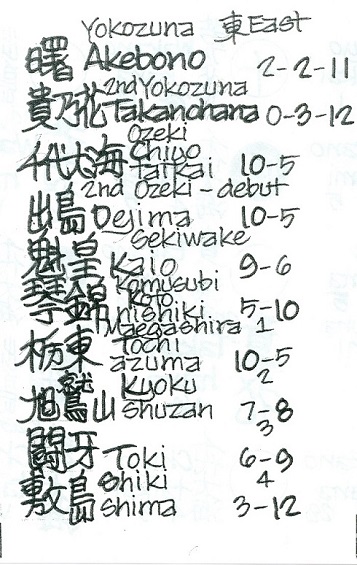 Yokozuna 東East
曙 Akebono 2-2-11
2nd Yokozuna
貴乃花 Takanohana 0-3-12
Ozeki
千代大海 Chiyo
Taikai 10-5
2nd Ozeki - debut
出島 Dejima 10-5
Sekiwake
魁皇 Kaio 9-6
Komusubi
琴錦 Koto
nishiki 5-10
Maegashira 1
栃東 Tochi
azuma 10-5
2
旭鷲山 Kyoku
shuzan 7-8
3
闘牙 Toki 6-9
4
敷島 Shiki
shima 3-12